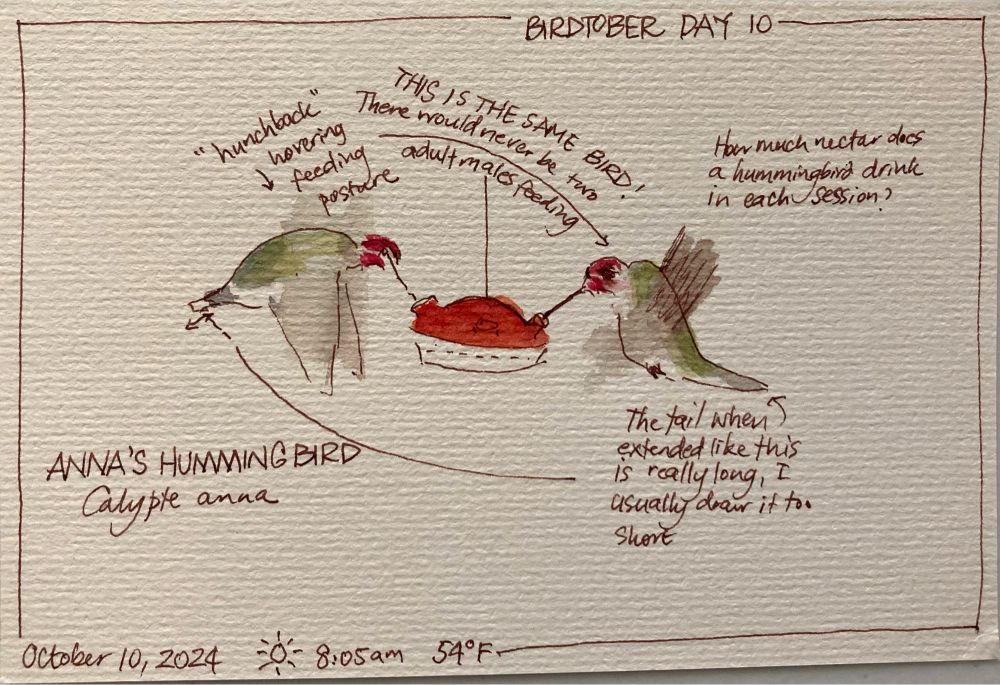 BIRDTOBER DAY 10
"hunchback"
hovering
feeding
posture
THIS IS THE SAME BIRD!
There would never be two
adult males feeding
How much nectar does
a hummingbird drink
in each session?
The tail when
extended like this
is really long, I
usually draw it too
short
ANNA'S HUMMINGBIRD
Calypte anna
October 10, 2024 8:05am 54°F